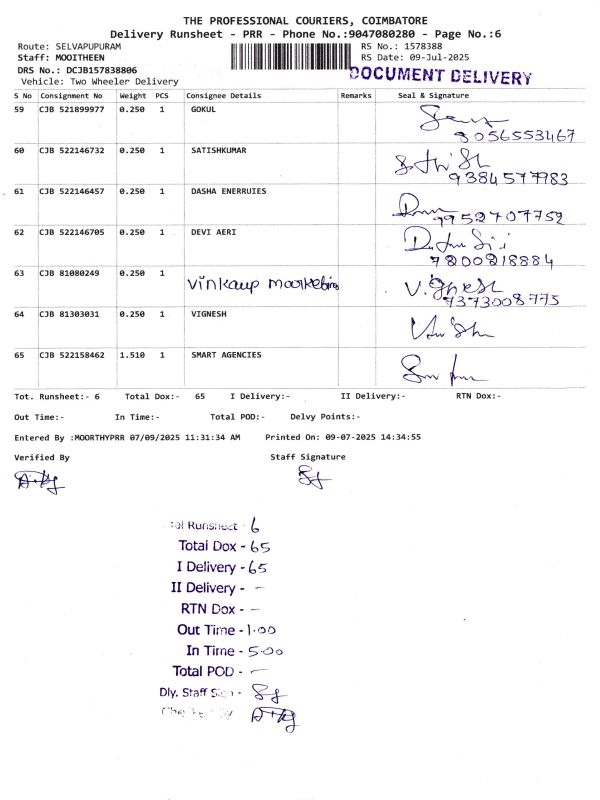 THE PROFESSIONAL COURIERS, COIMBATORE
Delivery Runsheet - PRR - Phone No.:9047080280 - Page No.:6
Route: SELVAPUPURAM RS No.: 1578388
Staff: MOOITHEEN RS Date: 09-Jul-2025
DRS No.: DCJB157838806 DOCUMENT DELIVERY
Vehicle: Two Wheeler Delivery
S No Consignment No Weight PCS Consignee Details Remarks Seal & Signature
59 CJB 521899977 0.250 1 GOKUL
9056553467
60 CJB 522146732 0.250 1 SATISHKUMAR
9384577983
61 CJB 522146457 0.250 1 DASHA ENERRUIES
9952707752
62 CJB 522146705 0.250 1 DEVI AERI
7200818884
63 CJB 81080249 0.250 1
7373008775
64 CJB 81303031 0.250 1 VIGNESH
65 CJB 522158462 1.510 1 SMART AGENCIES
Tot. Runsheet:- 6 Total Dox:- 65 I Delivery:- II Delivery:- RTN Dox:-
Out Time:- In Time:- Total POD:- Delvy Points:-
Entered By :MOORTHYPRR 07/09/2025 11:31:34 AM Printed On: 09-07-2025 14:34:55
Verified By Staff Signature
Runsheet - 6
Total Dox - 65
I Delivery - 65
II Delivery - -
RTN Dox - -
Out Time - 1.00
In Time - 5.00
Total POD - -
Dly. Staff Sign -